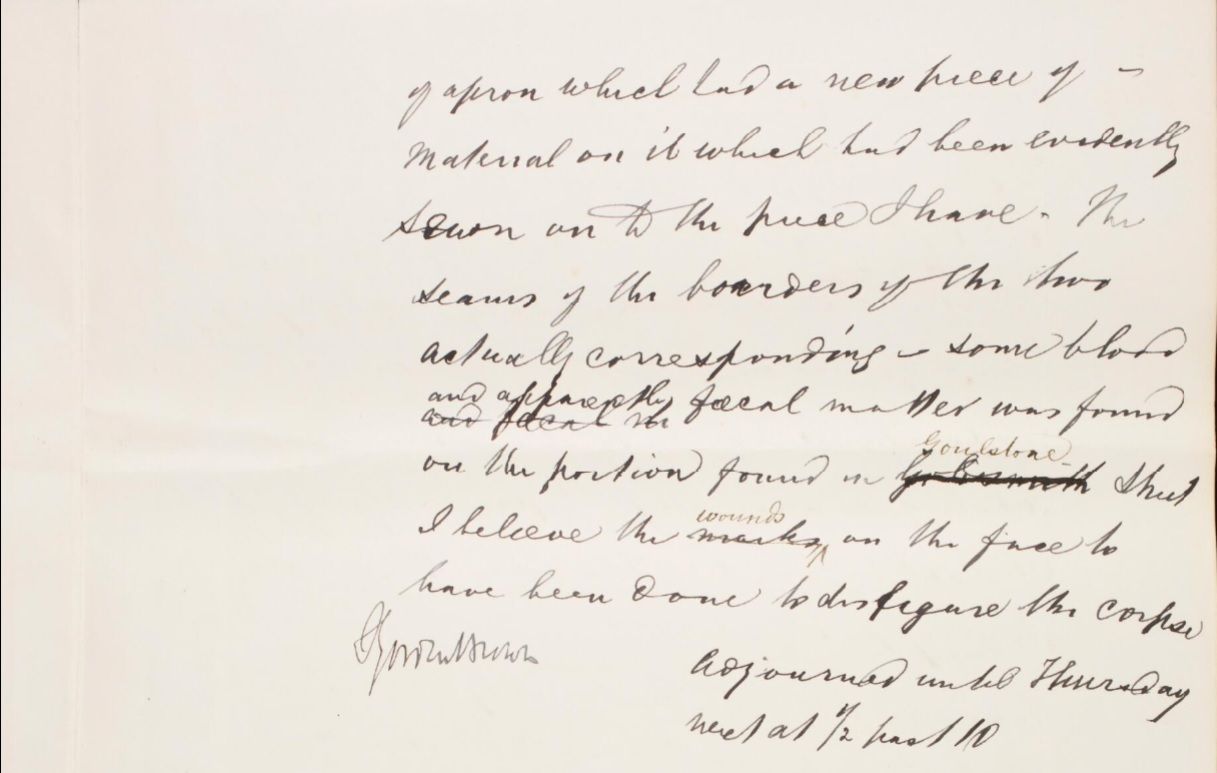 of apron which had a new piece of –
Material on it which had been evidently
sewn on to the piece I have. The
seams of the boarders of the two
actually corresponding – some blood
and apparently fœcal matter was found
and fœcal m
on the portion found in Goulstone Street
I beleeve the wounds marks on the face to
have been done to disfigure the corpse
F Gordon Brown
Adjourned until Thursday
next at 1/2 past 10